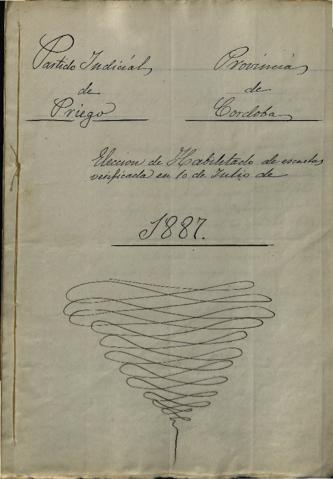 Partido Judicial
de
Priego
Provincia
de
Cordoba
Eleccion de Habilitado de escuelas
verificada en 10 de Julio de
1887.